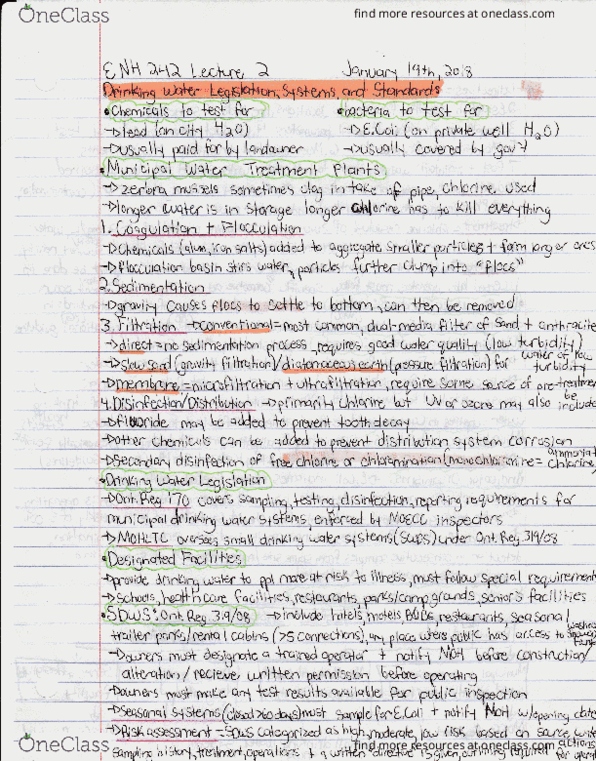 OneClass
find more resources at oneclass.com
ENH 242 Lecture 2 January 19th, 2018
Drinking Water Legislation, Systems, and Standards
•Chemicals to test for •bacteria to test for
→lead (on city H2O) →E.Coli (on private well H2O)
→usually paid for by landowner →usually covered by gov't
•Municipal Water Treatment Plants
→zebra mussels sometimes clog intake of pipe, chlorine used
→longer water is in storage longer chlorine has to kill everything
1. Coagulation + Flocculation
→Chemicals (alum, iron salts) added to aggregate smaller particles + form larger ones
→flocculation basin stirs water, particles further clump into "flocs"
2. Sedimentation
→gravity causes flocs to settle to bottom, can then be removed
3. Filtration →conventional = most common, dual-media filter of sand + anthracite
→direct = no sedimentation process, requires good water quality (low turbidity)
→slow sand (gravity filtration)/diatomaceous earth (pressure filtration) for water of low turbidity
→membrane = microfiltration + ultrafiltration, require some source of pre-treatment
4. Disinfection/Distribution →primarily chlorine but UV or ozone may also be include
→fluoride may be added to prevent tooth decay
→other chemicals can be added to prevent distribution system corrosion
→secondary disinfection of free chlorine or chloramination (monochloramine = chlorine,
•Drinking Water Legislation
→Ont. Reg 170 covers sampling, testing, disinfection, reporting requirements for
municipal drinking water systems, enforced by MOECC inspectors
→MOHLTC oversees small drinking water systems (SDWS) under Ont. Reg. 319/08
•Designated Facilities
→provide drinking water to ppl more at risk to illness, must follow special requirements
→Schools, health care facilities, restaurants, parks/campgrounds, senior's facilities
•SDWS: Ont. Reg 319/08 →include hotels, motels, B&Bs, restaurants, seasonal
trailer parks/rental cabins (>5 connections), any place where public has access to
→owners must designate a trained operator + notify MOH before construction/
alteration/recieve written permission before operating
→owners must make any test results available for public inspection
→seasonal systems (closed >60 days) must sample for E.Coli + notify MOH w/opening date
→Risk assessment = SDWS categorized as high, moderate, low risk based on source water
OneClass
find more resources at oneclass.com
sampling history, treatment, operations + a written directive is given, outlining required